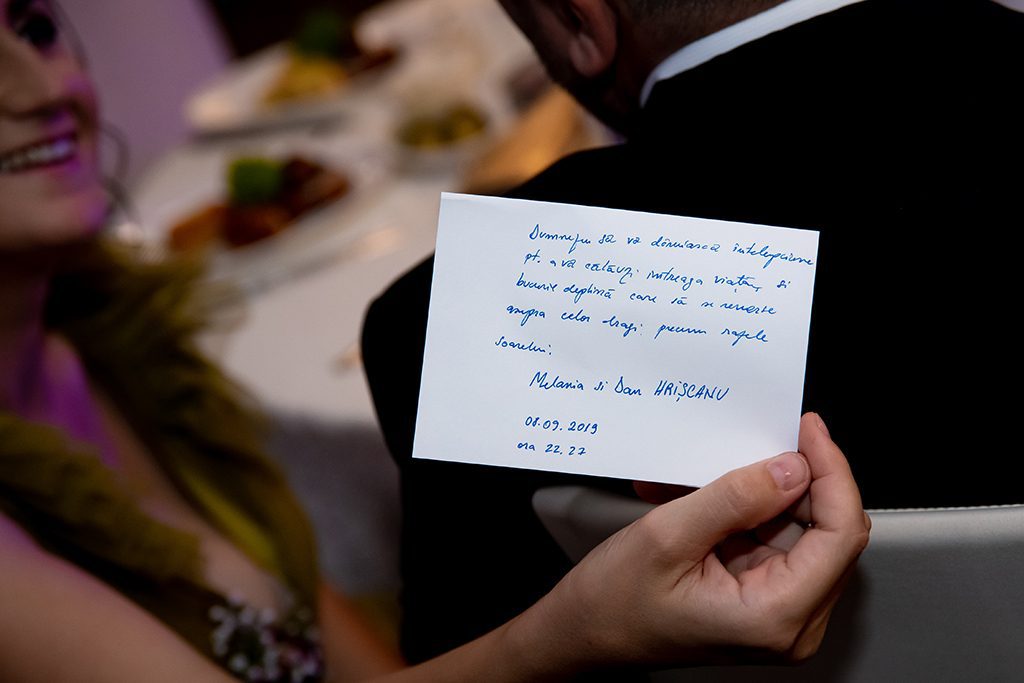 Dumnezeu să vă dăruiască înțelepciune
pt. a vă călăuzi întreaga viață, și
bucurie deplină care să se reverse
asupra celor dragi precum razele
soarelui.
Melania si Dan HRIȘCANU
08.09.2019
ora 22.27